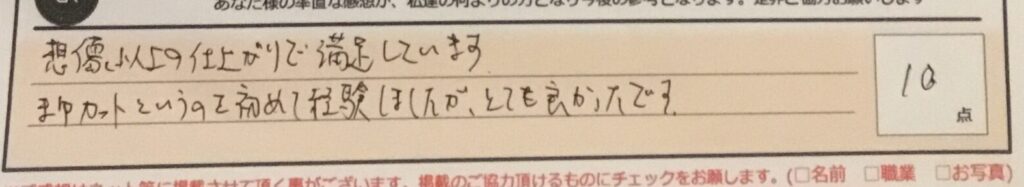 あなた様の率直な感想が、私達の何よりの力となり今後の参考となります。是非ご協力お願いします
想像以上の仕上がりで満足しています
まゆカットというのを初めて経験しましたが、とても良かったです。
10
点
に掲載させて頂く事がございます。掲載のご協力頂けるものにチェックをお願します。(□名前 □職業 □お写真)